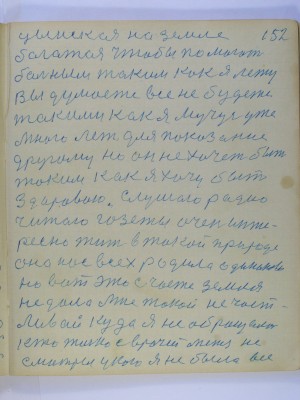 цынская на земле 152
богатая чтобы помогат
болным таким как я лежу
Вы думаете все не будете
такими как я мучус уже
много лет для показание
другому но он не хочет быт
таким как я хочу быт
здаровою. слушаю радио
читаю газеты очен инте-
ресно жит в такой природе
она нас всех родила одинаково
но вот это счастье земля
не дала мне такой не част-
ливай куда я не обращалас
кто только с врачей меня не
смотрел у кого я не была все